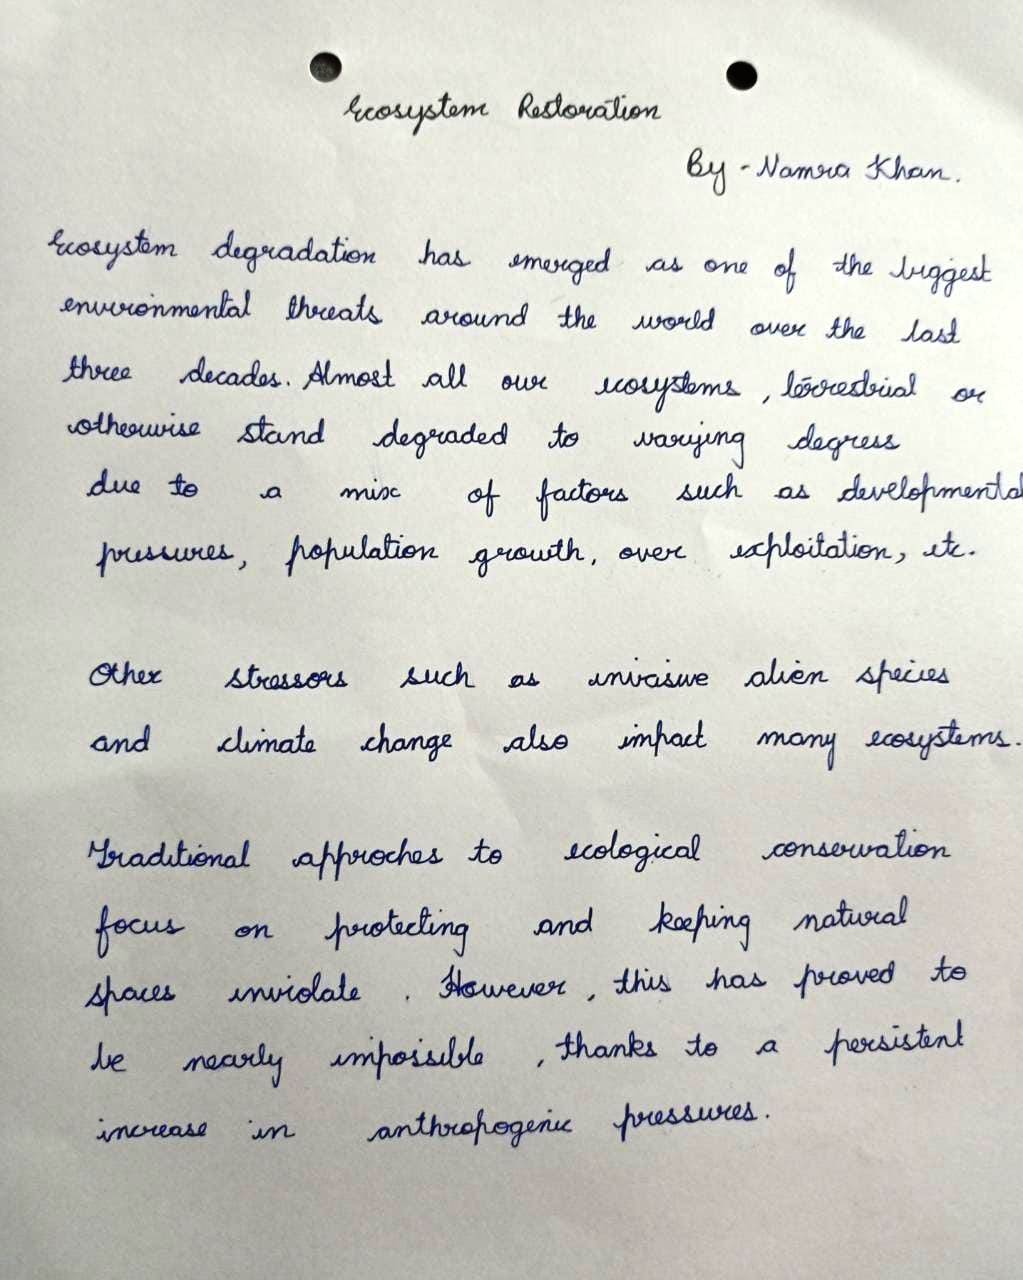 Ecosystem Restoration
By - Namra Khan.
Ecosystem degradation has emerged as one of the biggest
environmental threats around the world over the last
three decades. Almost all our ecosystems, terrestrial or
otherwise stand degraded to varying degress
due to a mix of factors such as developmental
pressures, population growth, over exploitation, etc.
Other stressors such as invasive alien species
and climate change also impact many ecosystems.
Traditional approches to ecological conservation
focus on protecting and keeping natural
spaces inviolate. However, this has proved to
be nearly impossible, thanks to a persistent
increase in anthropogenic pressures.